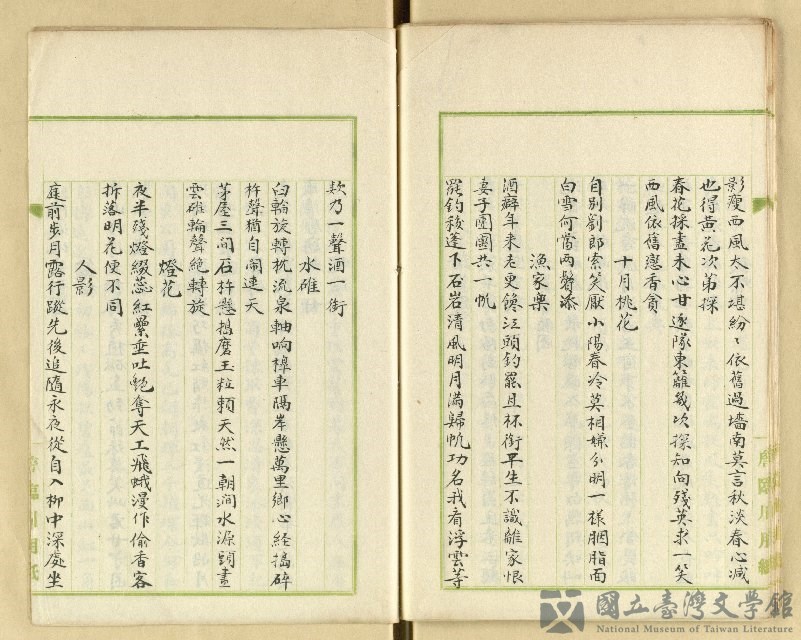 影瘦西風太不堪紛〻依舊過墻南莫言秋淡春心減
也得黃花次第探
春花採盡未心甘逐隊東籬幾次探知向殘英求一笑
西風依舊戀香貪
十月桃花
自別劉郎索笑厭小陽春冷莫相嫌分明一樣胭脂面
白雪何當兩鬢添
漁家樂
酒癖年來老更饞江頭釣罷且杯銜早生不識離家恨
妻子團圞共一帆
罷釣稜蓬下石岩清風明月滿歸帆功名我看浮雲等
欸乃一聲酒一銜
水碓
臼輪旋轉枕流泉軸响樟車隔岸懸萬里鄉心經搗碎
杵聲猶自鬧連天
茅屋三間石杵懸搗磨玉粒賴天然一朝澗水源頭盡
雲碓輪聲絕轉旋
燈花
夜半殘燈綴蕊紅纍垂吐艷奪天工飛蛾漫作偷香客
拆落明花便不同
人影
庭前步月露行蹤先後追隨永夜從自入柳中深處坐
國立臺灣文學館
National Museum of Taiwan Literature